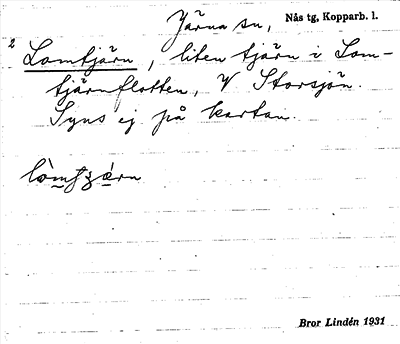 Järna sn, Nås tg, Kopparb. l.
2
Lomtjärn, liten tjärn i Lom-
tjärnflotten, V Storsjön.
Syns ej på kartan.
Bror Lindén 1931